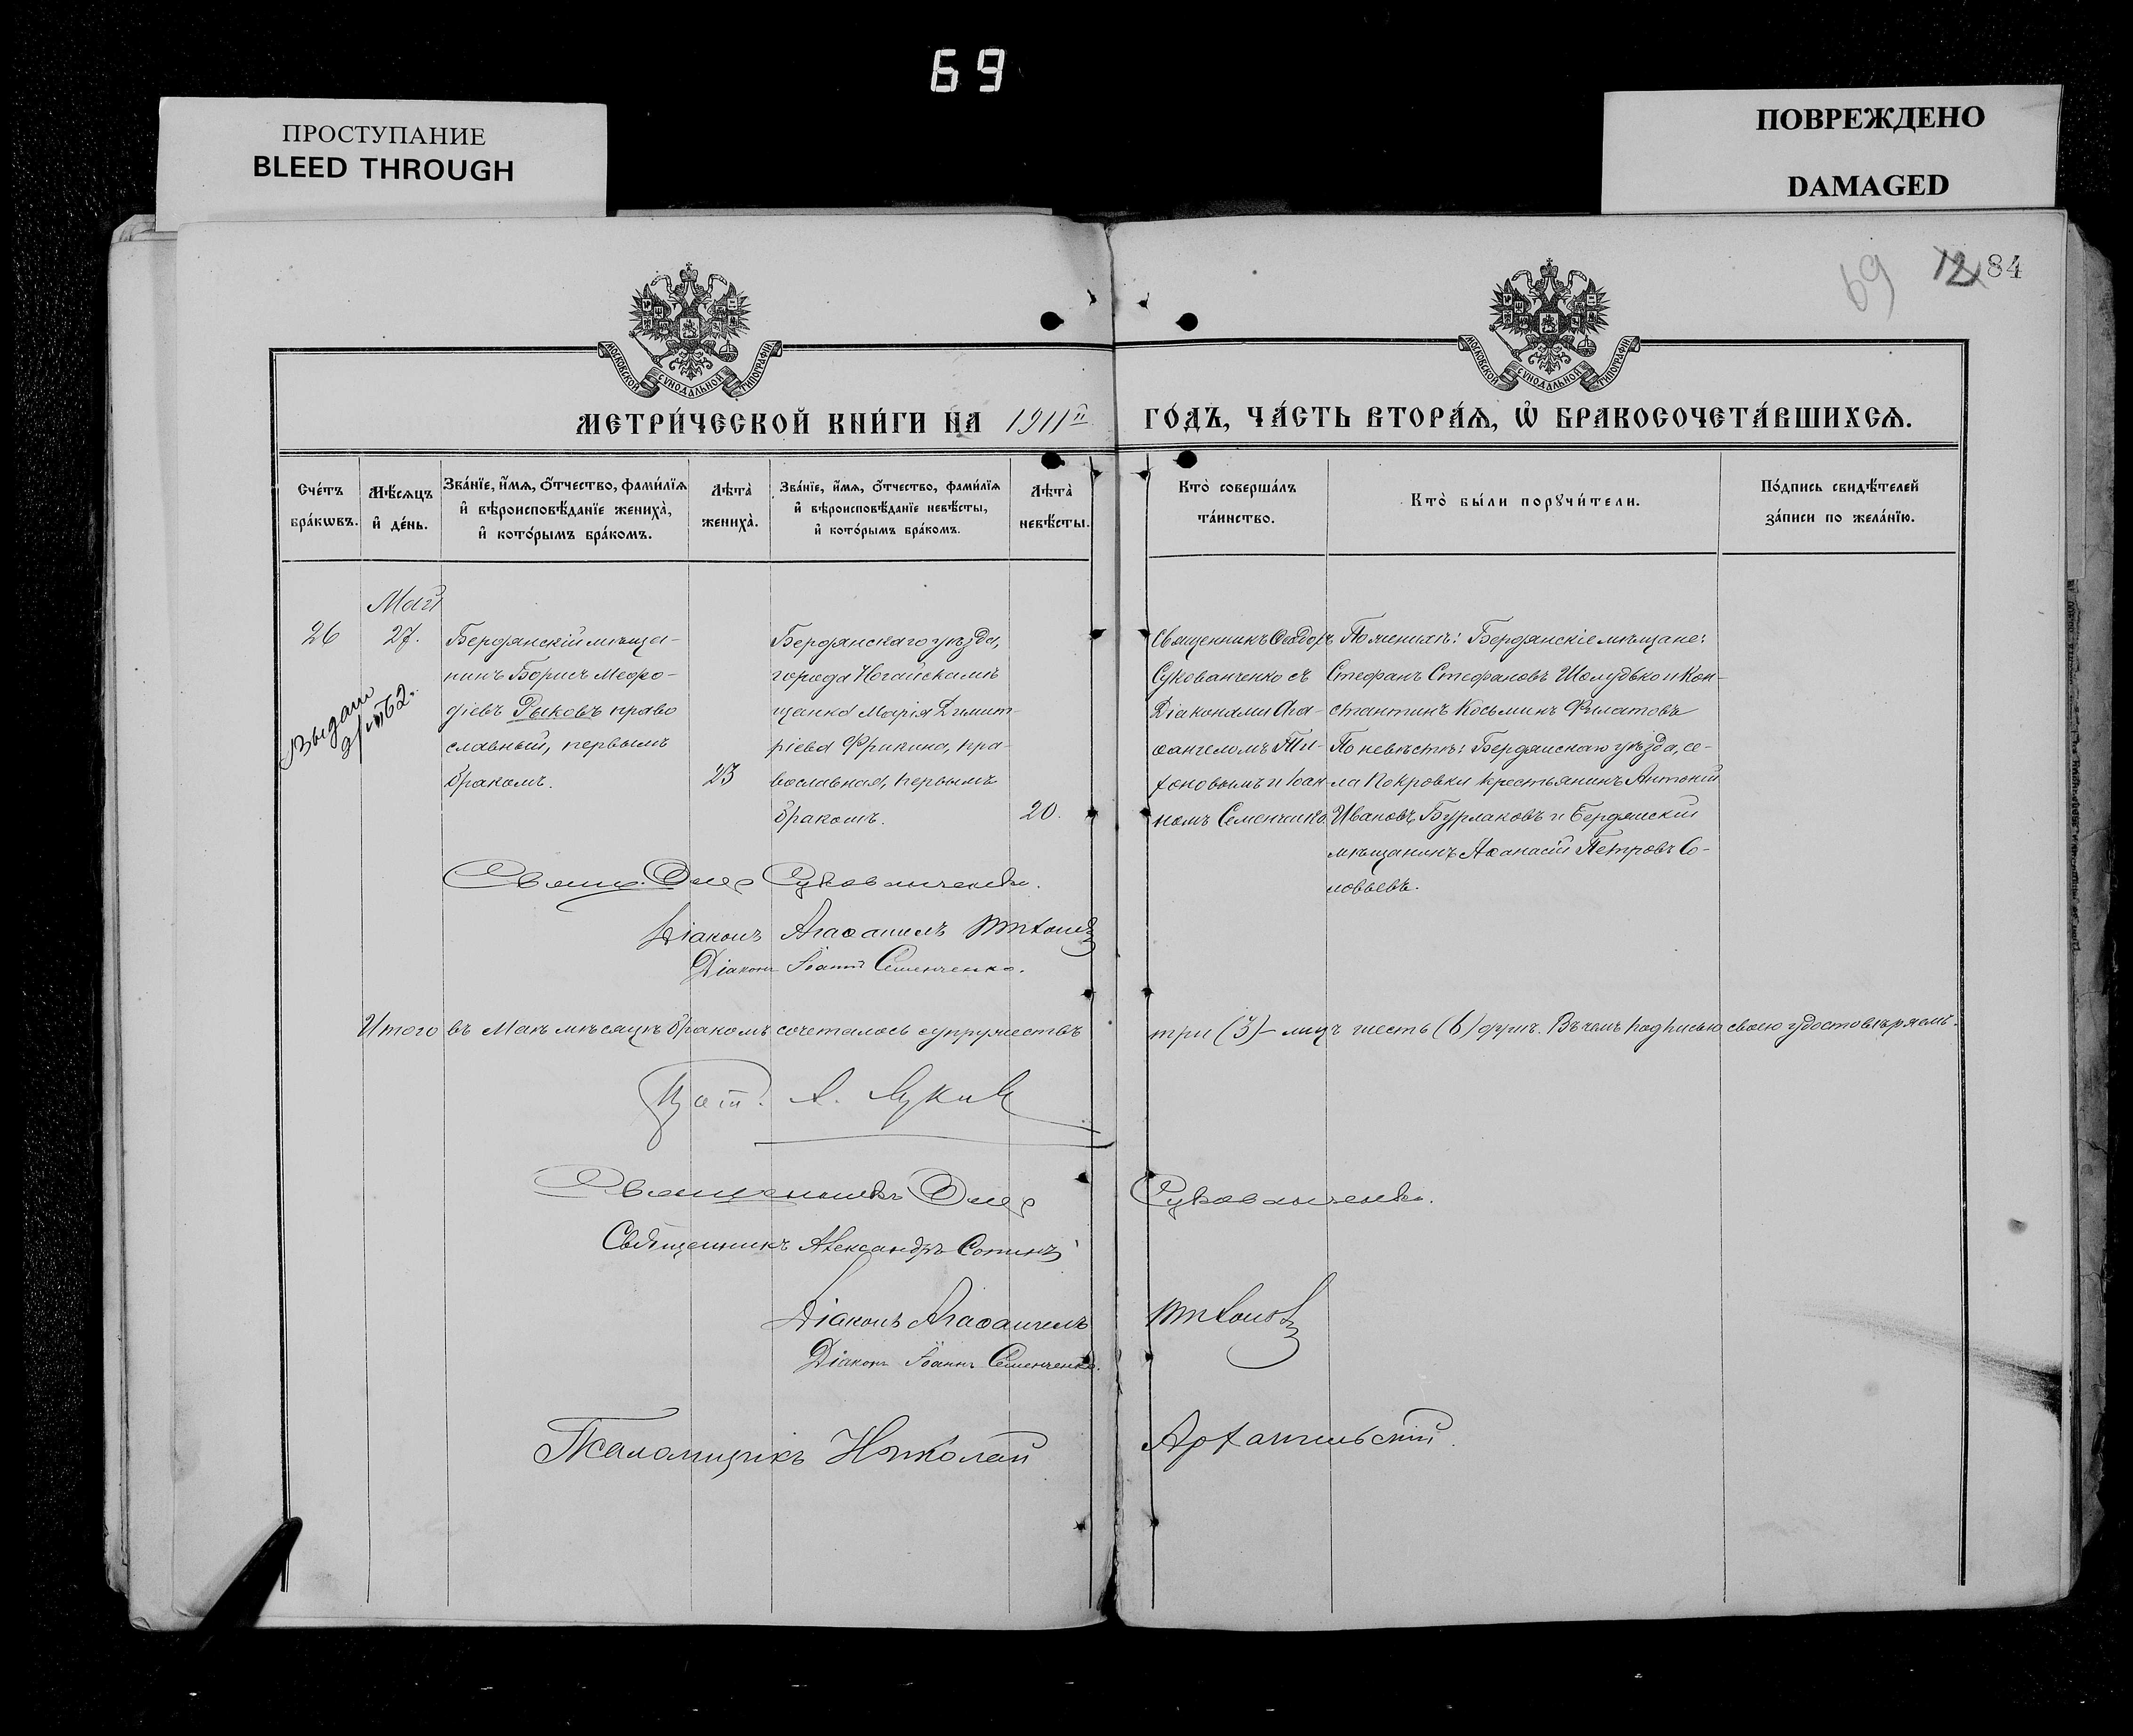 69
ПРОСТУПАНИЕ
BLEED THROUGH
ПОВРЕЖДЕНО
DAMAGED
69 12 84
МОСКОВСКОЙ СУНОДАЛЬНОЙ ТИПОГРАФІИ
МОСКОВСКОЙ СУНОДАЛЬНОЙ ТИПОГРАФІИ
МЕТРИ́ЧЕСКОЙ КНИ́ГИ НА 1911й ГО́ДЪ, ЧА́СТЬ ВТОРА́Ѧ, Ѿ БРАКОСОЧЕТА́ВШИХСѦ.
Сче́тъ бра́кѡвъ.
Мѣ́сѧцъ и҆ де́нь.
Зва́нїе, и҆́мѧ, ѻ҆́тчество, фами́лїѧ
и҆ вѣроисповѣ́данїе жениха̀,
и҆ кото́рымъ бра́комъ.
Лѣта̀ жениха̀.
Зва́нїе, и҆́мѧ, ѻ҆́тчество, фами́лїѧ
и҆ вѣроисповѣ́данїе невѣ́сты,
и҆ кото́рымъ бра́комъ.
Лѣта̀ невѣ́сты.
Кто̀ соверша́лъ та́инство.
Кто̀ бы́ли порꙋчи́тели.
По́дпись свидѣ́телей за́писи по жела́нїю.
Май
26
27.
Выдан
62.
Бердянскій мѣща-
нинъ Борисъ Мефо-
діевъ Рыковъ право
славный, первымъ
бракомъ.
23
Бердянскаго уѣзда,
города Ногайска мѣ
щанка Марія Димит-
ріева Фрикина, пра-
вославная, первымъ
бракомъ.
20.
Священникъ Ѳеодоръ
Сукованченко съ
Діаконами Ага-
ѳангеломъ Ти-
хоновымъ и Іоан
номъ Семенченко.
По женихѣ: Бердянскіе мѣщане:
Стефанъ Стефановъ Шолудько и Кон-
стантинъ Косьминъ Филатовъ
По невѣстѣ: Бердянскаго уѣзда, се-
ла Покровки крестьянинъ Антоній
Ивановъ Бурлаковъ и Бердянскій
мѣщанинъ Аѳанасій Петровъ Со-
ловьевъ.
Свящ. Ѳеод Сукованченко.
Діаконъ Агаѳангелъ Тихоновъ
Діаконъ Іоаннъ Семенченко.
Итого въ Маѣ мѣсяцѣ бракомъ сочеталось супружествъ три (3) – лицъ шесть (6) душъ. Въ чемъ подписью своею удостовѣряемъ.
Прот. А.
Священникъ Ѳеод Сукованченко.
Священникъ Александръ Сотинъ
Діаконъ Агаѳангелъ Тихоновъ
Діаконъ Іоаннъ Семенченко.
Псаломщикъ Николай Архангельскій.